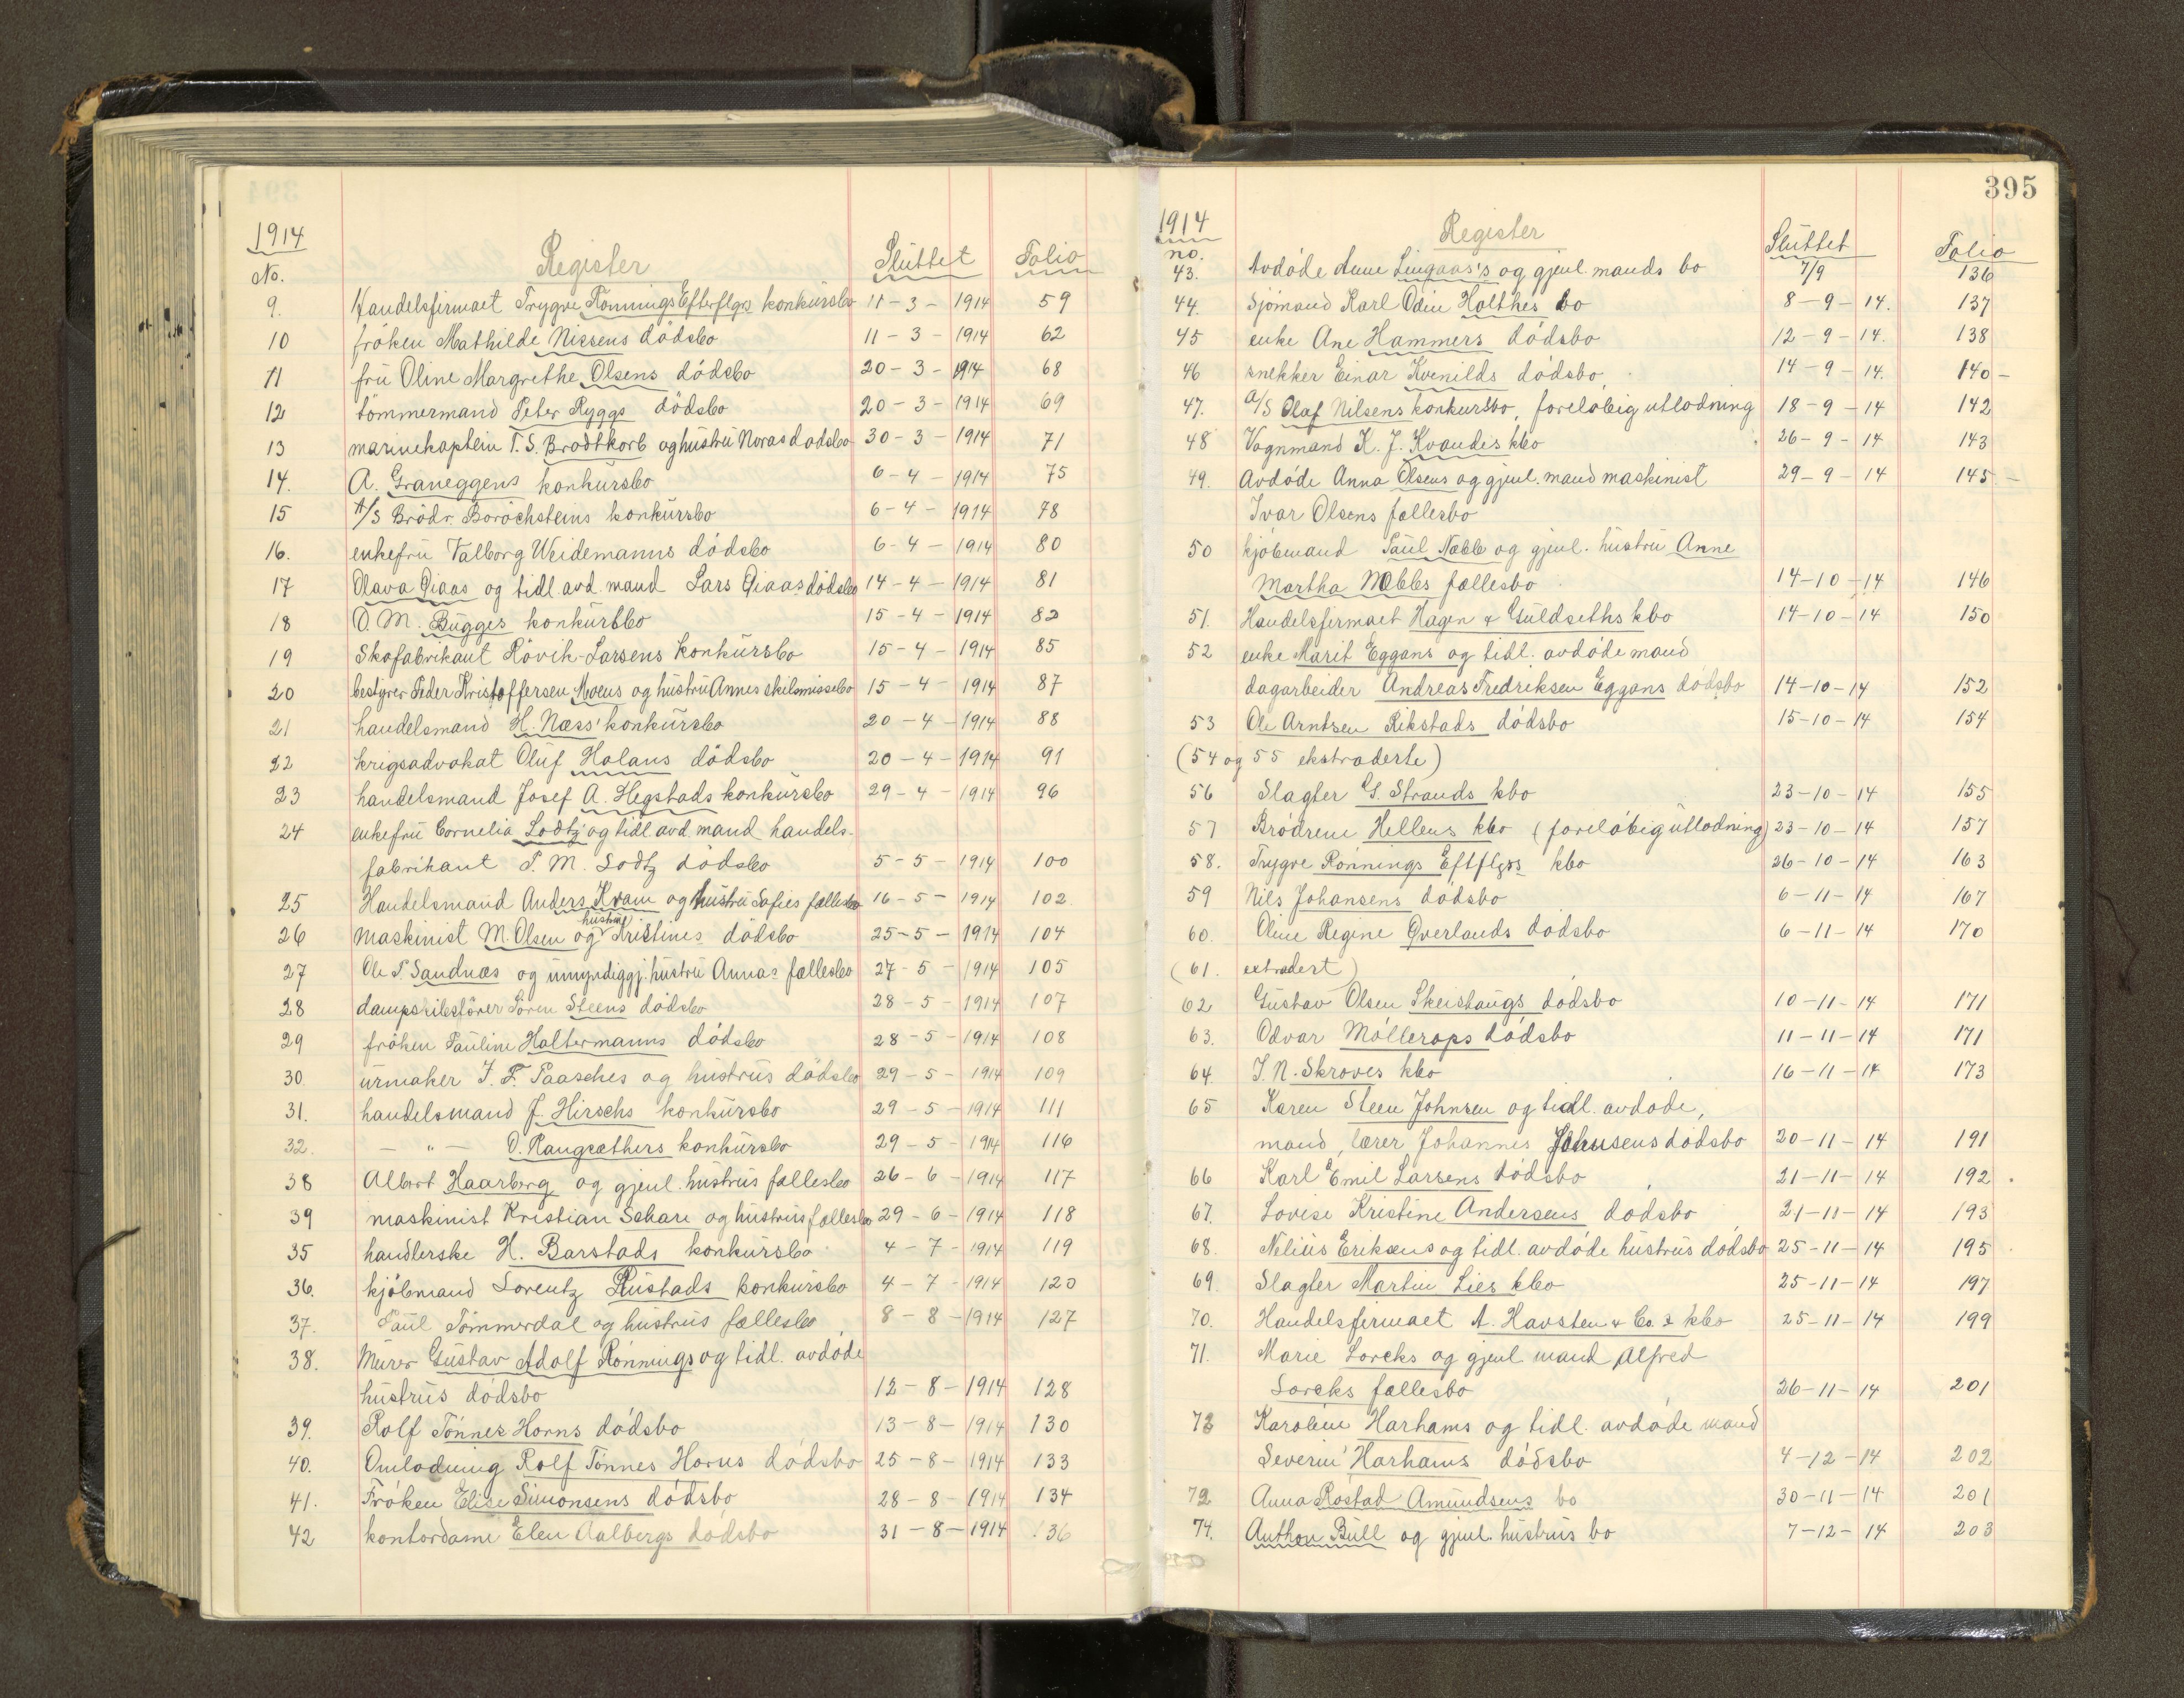 1914
No. Register Sluttet Folio
9. Handelsfirmaet Trygve Rønnings Efterflgrs konkursbo 11-3-1914 59
10 frøken Mathilde Nissens dødsbo 11-3-1914 62
11 fru Oline Margrethe Olsens dødsbo 20-3-1914 68
12 tømmermand Peter Ryggs dødsbo 20-3-1914 69
13 marinekaptein T. S. Brodtkorb og hustru Noras dødsbo 30-3-1914 71
14. A. Graneggens konkursbo 6-4-1914 75
15 A/S Brødr. Borochsteins konkursbo 6-4-1914 78
16. enkefru Valborg Weidemanns dødsbo 6-4-1914 80
17 Olava Qiaas og tidl. avd. mand Lars Qiaas dødsbo 14-4-1914 81
18 O. M. Bugges konkursbo 15-4-1914 82
19 Skofabrikant Rövik-Larsens konkursbo 15-4-1914 85
20 bestyrer Peder Kristoffersen Moens og hustru Annes skilsmissebo 15-4-1914 87
21 handelsmand H. Næss' konkursbo 20-4-1914 88
22 krigsadvokat Oluf Holans dødsbo 20-4-1914 91
23 handelsmand Josef A. Hegstads konkursbo 29-4-1914 96
24 enkefru Cornelia Lodtz og tidl. avd. mand handels-
fabrikant P. M. Lodtz dødsbo 5-5-1914 100
25 Handelsmand Anders Kvam og hustru Sofies fællesbo 16-5-1914 102.
26 maskinist M. Olsen og hustru Kristines dødsbo 25-5-1914 104
27 Ole P. Sandnæs og umyndiggj. hustru Annas fællesbo 27-5-1914 105
28 dampskibsfører Søren Steens dødsbo 28-5-1914 107
29 frøken Pauline Haltermanns dødsbo 28-5-1914 108
30. urmaker J. F. Paasches og hustrus dødsbo 29-5-1914 109
31. handelsmand J. Hirschs konkursbo 29-5-1914 111
32. — " — O. Raugsæthers konkursbo 29-5-1914 116
38 Albert Haarberg og gjenl. hustrus fællesbo 26-6-1914 117
39 maskinist Kristian Schare og hustrus fællesbo 29-6-1914 118
35 handlerske H. Barstads konkursbo 4-7-1914 119
36. kjøbmand Lorentz Rustads konkursbo 4-7-1914 120
37. Paul Tömmerdal og hustrus fællesbo 8-8-1914 127
38. Murer Gustav Adolf Rønnings og tidl. avdøde
hustrus dødsbo 12-8-1914 128
39. Rolf Tønnes Horns dødsbo 13-8-1914 130
40. Omlodning Rolf Tønnes Horns dødsbo 25-8-1914 133
41. Frøken Elise Simonsens dødsbo 28-8-1914 134
42 kontordame Elen Aalbergs dødsbo 31-8-1914 136
395
1914
no. Register Sluttet Folio
43. Avdøde Anne Lingaas's og gjenl. mands bo 7/9 136
44. Sjömand Karl Odin Holthes bo 8-9-14. 137
45 enke Ane Hammers dødsbo 12-9-14. 138
46 snekker Einar Kvenilds dødsbo. 14-9-14. 140-
47. A/S Olaf Nilsens konkursbo, foreløbig utlodning 18-9-14 142
48 Vognmand K. J. Kvandes kbo 26-9-14 143
49. Avdøde Anna Olsens og gjenl. mand maskinist 29-9-14 145-
Ivar Olsens fællesbo
50 kjøbmand Paul Næbb og gjenl. hustru Anne
Martha Næbbs fællesbo 14-10-14 146
51. Handelsfirmaet Hagen & Guldseths kbo 14-10-14 150
52 enke Marit Eggans og tidl. avdøde mand
dagarbeider Andreas Fredriksen Eggans dødsbo 14-10-14 152
53 Ole Arntsen Rikstads dødsbo 15-10-14 154
(54 og 55 ekstraderte)
56 Slagter G. Strands kbo 23-10-14 155
57 Brødrene Hellens kbo (foreløbig utlodning) 23-10-14 157
58. Trygve Rønnings Eftflgrs kbo 26-10-14 163
59 Nils Johansens dødsbo 6-11-14 167
60. Oline Regine Qverlands dødsbo 6-11-14 170
(61. extradert)
62 Gustav Olsen Skeistaugs dødsbo 10-11-14 171
63. Odvar Möllerops dødsbo 11-11-14 171
64. J. N. Skroves kbo 16-11-14 173
65 Karen Steen Johnsen og tidl. avdøde,
mand, lærer Johannes Johnsens dødsbo 20-11-14 191
66 Karl Emil Larsens dødsbo 21-11-14 192.
67. Lovise Kristine Andersens dødsbo 21-11-14 193
68. Nelius Eriksens og tidl. avdøde hustrus dødsbo 25-11-14 195
69. Slagter Martin Lies kbo 25-11-14 197
70. Handelsfirmaet A. Havsten & Co.s kbo 25-11-14 199
71. Marie Lorcks og gjenl. mand Alfred
Lorcks fællesbo 26-11-14 201
73 Karoline Harhams og tidl. avdøde mand
Severin Harhams dødsbo 4-12-14 202
72 Anna Rostad Amundsens bo 30-11-14 201
74. Anthon Bull og gjenl. hustrus bo 7-12-14 203